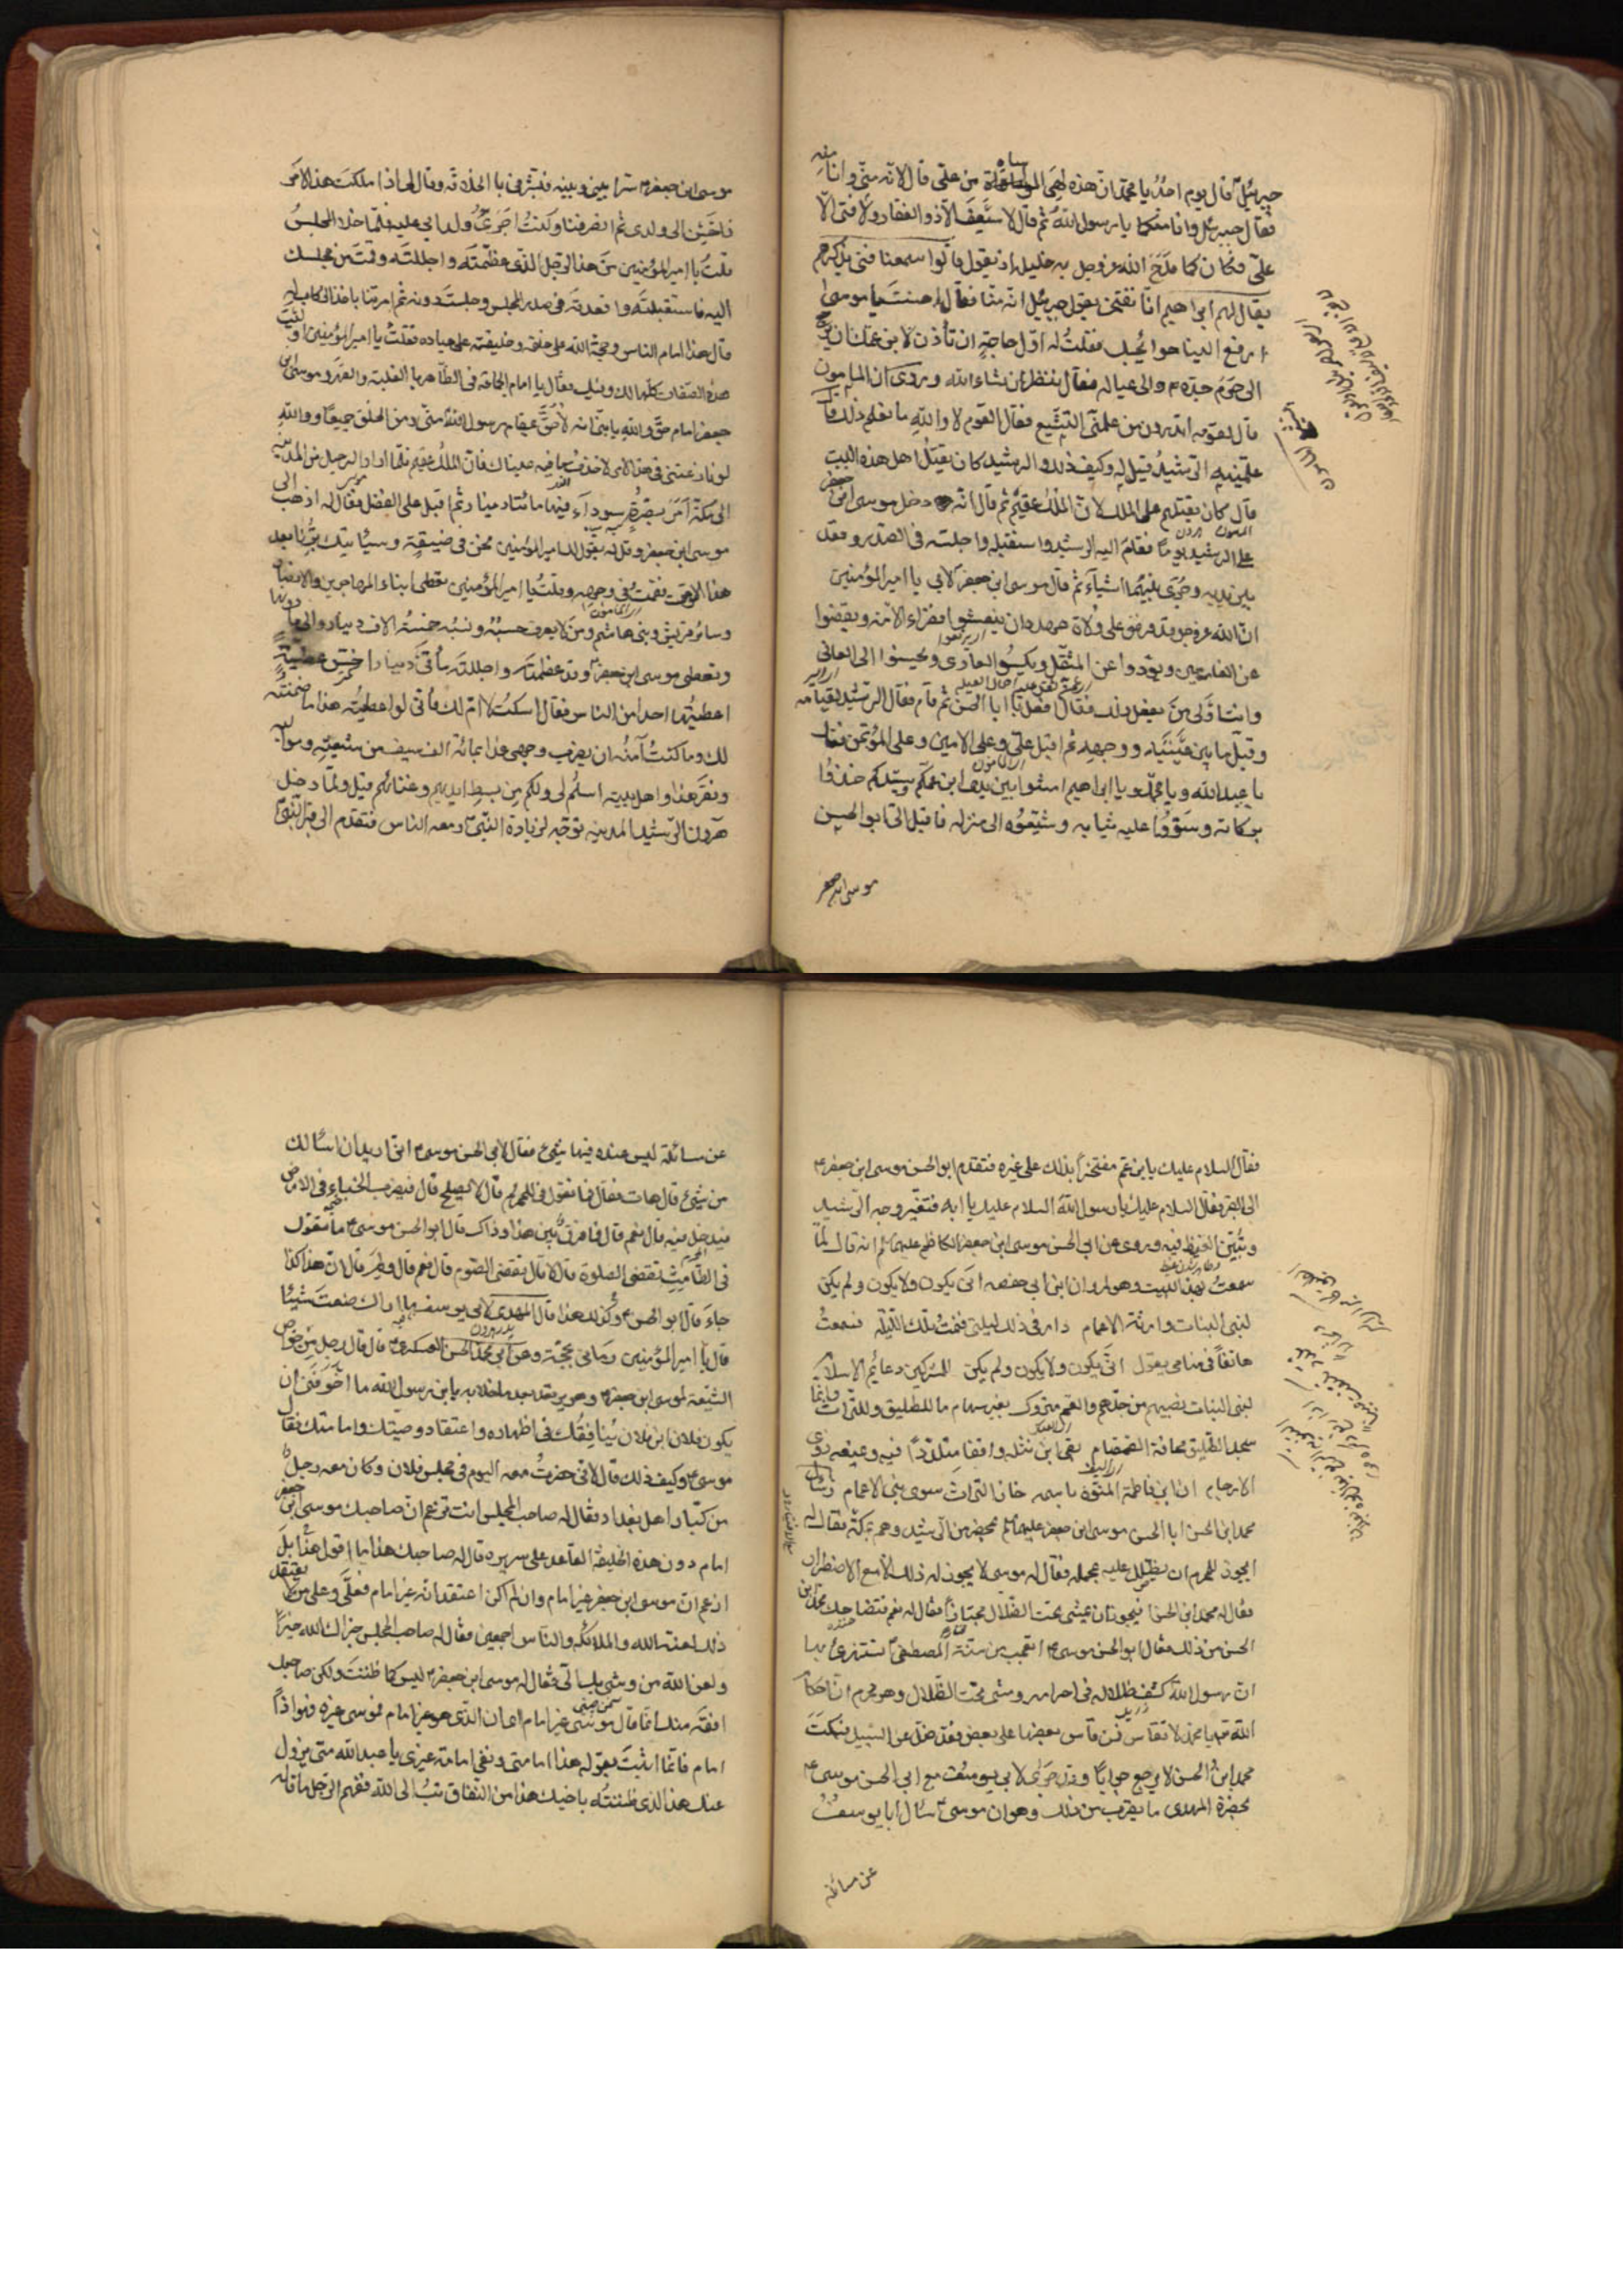 جبرئيل قال يوم احد يا محمد ان هذه لهي المواساة من علي قال لانه مني وانا منه
فقال جبرئيل وانا منكما يا رسول الله ثم قال لا سيف الا ذو الفقار ولا فتى الا
علي فكان كما مدح الله عز وجل به خليله اذ يقول قالوا سمعنا فتى يذكرهم
يقال له ابراهيم انا نفتخر بقول جبرئيل انه منا فقال احسنت يا موسى
ارفع الينا حوائجك فقلت له اول حاجة ان تأذن لابن عمك ان يرجع
الى حرم جده م والى عياله فقال ننظر ان شاء الله وروى ان المأمون
قال لقومه اتدرون من علمني التشيع فقال القوم لا والله ما نعلم ذلك قال
علمنيه الرشيد قيل له وكيف ذلك والرشيد كان يقتل اهل هذه البيت
قال كان يقتلهم على الملك لان الملك عقيم ثم قال انه دخل موسى ابن جعفر
على الرشيد يوما فقام اليه الرشيد واستقبله واجلسه في الصدر وقعد
بين يديه وجرى بينهما اشياء ثم قال موسى ابن جعفر لابي يا امير المؤمنين
ان الله عز وجل قد فرض على ولاة عهده ان ينعشوا فقراء الامة ويقضوا
عن الغارمين ويؤدوا عن المثقل ويكسوا العاري ويحسنوا الى العاني
وانت اولى من يفعل ذلك فقال افعل يا ابا الحسن ثم قام فقام الرشيد لقيامه
وقبل ما بين عينيه ووجهه ثم اقبل علي وعلى الامين وعلى المؤتمن فقال
يا عبد الله ويا محمد ويا ابراهيم امشوا بين يدي ابن عمكم وسيدكم خذوا
بركابه وسووا عليه ثيابه وشيعوه الى منزله فاقبل الي ابو الحسن
موسى ابن جعفر
موسى ابن جعفر م سرا بيني وبينه فبشرني بالخلافة وقال لي اذا ملكت هذا الامر
فاحسن الى ولدي ثم انصرفنا وكنت اجرئ ولد ابي عليه فلما خلا المجلس
قلت يا امير المؤمنين من هذا الرجل الذي عظمته واجللته وقمت من مجلسك
اليه فاستقبلته واقعدته في صدر المجلس وجلست دونه ثم امرتنا باخذ الركاب له
قال هذا امام الناس وحجة الله على خلقه وخليفته على عباده فقلت يا امير المؤمنين او ليست
هذه الصفات كلها لك وفيك فقال انا امام الجماعة في الظاهر بالغلبة والقهر وموسى ابن
جعفر امام حق والله يا بني انه لاحق بمقام رسول الله مني ومن الخلق جميعا ووالله
لو نازعتني في هذا الامر لاخذت ما فيه عيناك فان الملك عقيم فلما اراد الرحيل من المدينة
الى مكة امر بصرة سوداء فيها مائتا دينار ثم اقبل على الفضل فقال له اذهب الى
موسى ابن جعفر وقل له يقول لك امير المؤمنين نحن في ضيقة وسيأتيك برنا بعد
هذا الوقت فقمت في وجهه وقلت يا امير المؤمنين تعطي ابناء المهاجرين والانصار
وسائر قريش وبني هاشم ومن لا يعرف حسبه ونسبه خمسة الاف دينار والى ما دونها
وتعطي موسى ابن جعفر وقد عظمته واجللته مأتي دينار اخس عطية
اعطيتها احدا من الناس فقال اسكت لا ام لك فاني لو اعطيته هذا ما ضمنته
لك وما كنت آمنه ان يضرب وجهي غدا بمائة الف سيف من شيعته ومواليه
وفقر هذا واهل بيته اسلم لي ولكم من بسط ايديهم وغنائهم قيل ولما دخل
هرون الرشيد المدينة توجه لزيارة النبي ومعه الناس فتقدم الى قبر النبي
فقال السلام عليك يا ابن عم مفتخرا بذلك على غيره فتقدم ابو الحسن موسى ابن جعفر م
الى القبر فقال السلام عليك يا رسول الله السلام عليك يا ابه فتغير وجه الرشيد
وتبين الغيظ فيه وروى عن ابي الحسن موسى ابن جعفر الكاظم عليهما م انه قال لما
سمعت هذا البيت وهو لمروان ابن ابي حفصه انى يكون ولا يكون ولم يكن
لبني البنات وراثة الاعمام دار في ذلك ليلتي فنمت تلك الليلة فسمعت
هاتفا في منامي يقول انى يكون ولا يكون ولم يكن للمشركين دعائم الاسلام
لبني البنات نصيبهم من جدهم والعم متروك بغير سهام ما للطليق وللتراث وانما
سجد الطليق مخافة الصمصام وبقى ابن نثلة واقفا متلددا فيه ويمنعه ذوي
الارحام ان ابن فاطمة المنوه باسمه حاز التراث سوى بني الاعمام وسأل
محمد ابن الحسن ابا الحسن موسى ابن جعفر عليهما م بمحضر من الرشيد وهم بمكة فقال له
ايجوز للمحرم ان يظلل عليه محمله فقال له موسى لا يجوز له ذلك الا مع الاضطرار
فقال له محمد ابن الحسن فيجوز ان يمشي تحت الظلال مختارا فقال له نعم فتضاحك محمد ابن
الحسن من ذلك فقال ابو الحسن موسى م اتعجب من سنة المصطفى وتستهزئ بها
ان رسول الله كشف ظلاله في احرامه ومشى تحت الظلال وهو محرم ان احكام
الله تعالى يا محمد لا تقاس فمن قاس بعضها على بعض فقد ضل عن السبيل فسكت
محمد ابن الحسن لا يرجع جوابا وقد جرى لابي يوسف مع ابي الحسن موسى م
بحضرة المهدي ما يقرب من ذلك وهو ان موسى سأل ابا يوسف
عن مسائلة
عن مسائلة ليس عنده فيها شيئ فقال لابي الحسن موسى م اني اريد ان اسألك
من شيئ قال هات فقال فما تقول في المحرم قال لا يصلح قال فيضرب الخباء في الارض
فيدخل فيه قال نعم قال فما فرق بين هذا وذاك قال ابو الحسن موسى م ما تقول
في الطامث تقضي الصلوة قال لا قال تقضي الصوم قال نعم قال ولم قال ان هذا كذا
جاء قال ابو الحسن م وكذلك هذا قال المهدي لابي يوسف ما اراك صنعت شيئا
قال يا امير المؤمنين رماني بحجة وعن ابي محمد الحسن العسكري م قال قال رجل من خواص
الشيعة لموسى ابن جعفر م وهو يرتعد بعد ما خلا به يا ابن رسول الله ما اخوفني ان
يكون فلان ابن فلان ينافقك في اظهاره واعتقاد وصيتك وامامتك فقال
موسى م وكيف ذلك قال لاني حضرت معه اليوم في مجلس فلان وكان معه رجل
من كبار اهل بغداد فقال له صاحب المجلس انت تزعم ان صاحبك موسى ابن جعفر
امام دون هذه الخليفة القاعد على سريره قال له صاحبك هذا ما اقول هذا بل
ازعم ان موسى ابن جعفر غير امام وان لم اكن اعتقد انه غير امام فعلي وعلى من لا يعتقد
ذلك لعنة الله والملائكة والناس اجمعين فقال له صاحب المجلس جزاك الله خيرا
ولعن الله من وشى بك الي فقال له موسى ابن جعفر م ليس كما ظننت ولكن صاحبك
افقه منك انما قال موسى غير امام اي ان الذي هو غير امام فموسى غيره فهو اذا
امام فانما اثبت بقوله هذا امامتي ونفى امامة غيري يا عبد الله متى يزول
عنك هذا الذي ظننته باخيك هذا من النفاق تب الى الله ففهم الرجل ما قاله